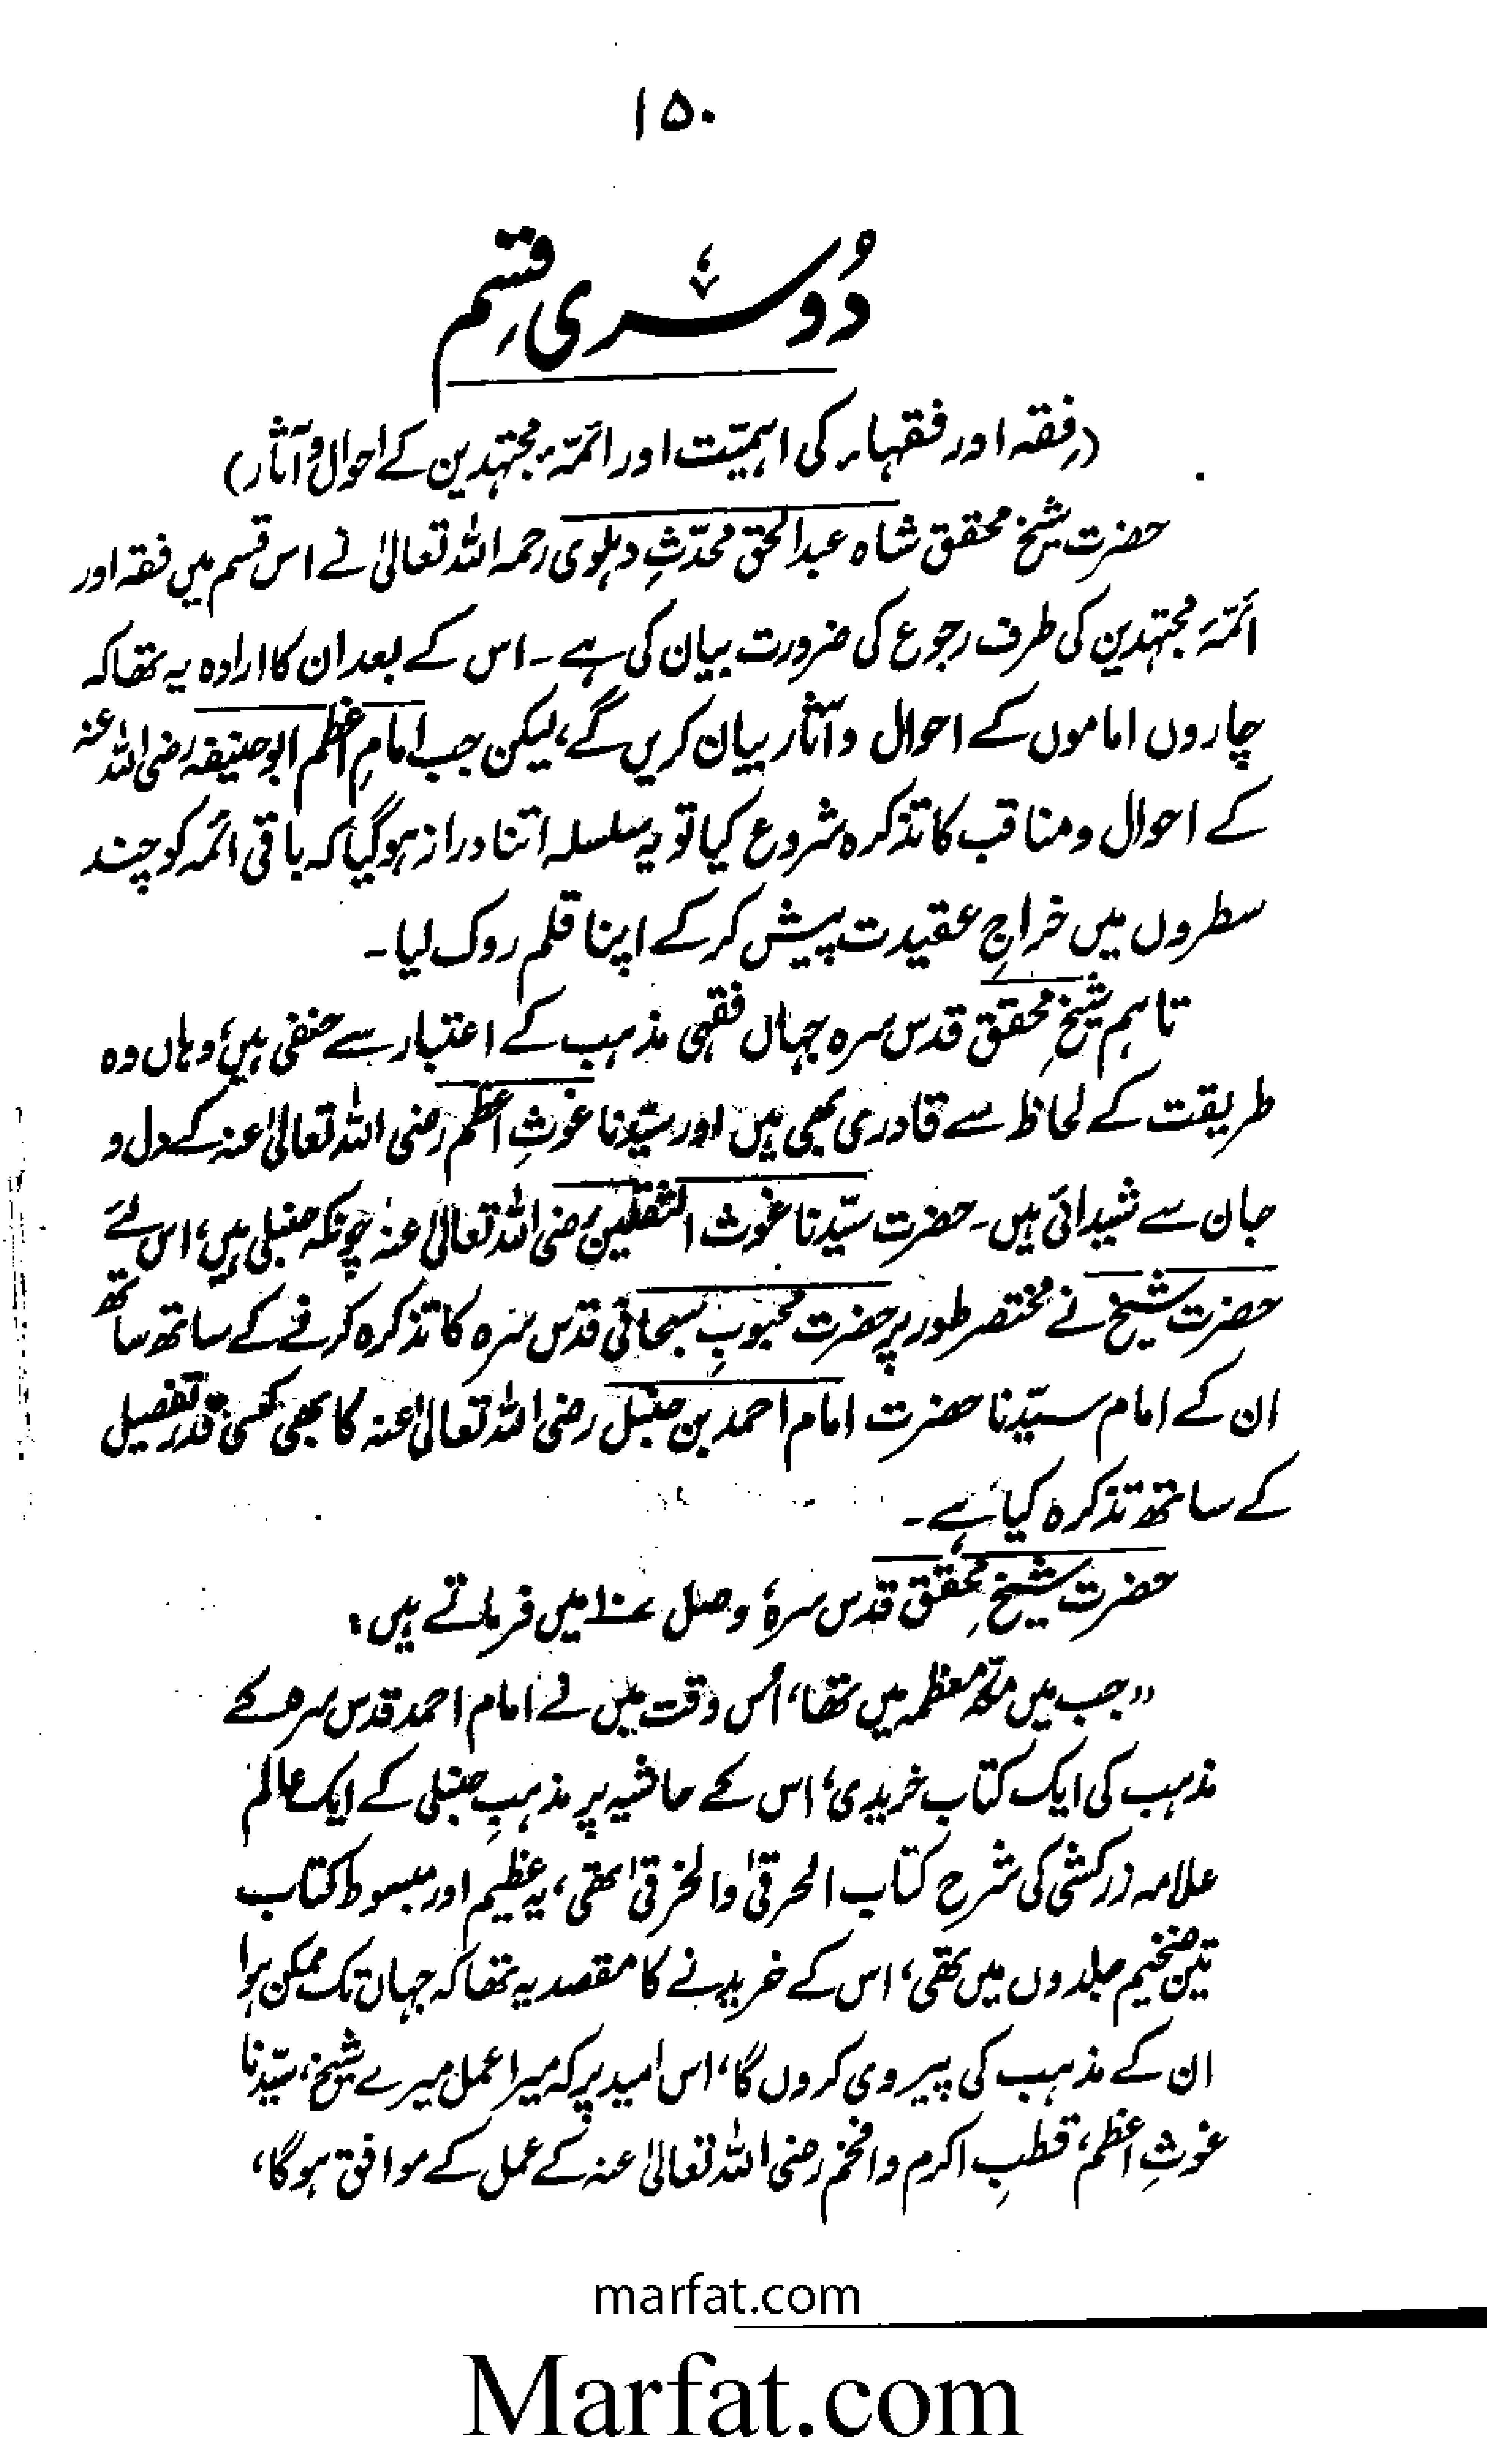 ۱۵۰
دُوسری قِسم
(فِقہ اور فقہاء کی اہمیّت اور ائمّۂ مجتہدین کے احوال و آثار)
حضرت شیخ محقق شاہ عبدالحق محدّثِ دہلوی رحمہ اللہ تعالیٰ نے اس قسم میں فقہ اور
ائمّۂ مجتہدین کی طرف رجوع کی ضرورت بیان کی ہے۔ اس کے بعد ان کا ارادہ یہ تھا کہ
چاروں اماموں کے احوال و آثار بیان کریں گے، لیکن جب امامِ اعظم ابوحنیفہ رضی اللہ عنہ
کے احوال و مناقب کا تذکرہ شروع کیا تو یہ سلسلہ اتنا دراز ہوگیا کہ باقی ائمہ کو چند
سطروں میں خراجِ عقیدت پیش کر کے اپنا قلم روک لیا۔
تاہم شیخِ محقق قدس سرہ جہاں فقہی مذہب کے اعتبار سے حنفی ہیں، وہاں وہ
طریقت کے لحاظ سے قادری بھی ہیں اور سیّدنا غوثِ اعظم رضی اللہ تعالیٰ عنہ کے دل و
جان سے شیدائی ہیں۔ حضرت سیّدنا غوث الثقلین رضی اللہ تعالیٰ عنہ چونکہ حنبلی ہیں، اس لئے
حضرت شیخ نے مختصر طور پر حضرت محبوبِ سبحانی قدس سرہ کا تذکرہ کرنے کے ساتھ ساتھ
ان کے امام سیّدنا حضرت امام احمد بن حنبل رضی اللہ تعالیٰ عنہ کا بھی کسی قدر تفصیل
کے ساتھ تذکرہ کیا ہے۔
حضرت شیخِ محقق قدس سرہٗ، وصل میں فرماتے ہیں:
"جب میں مکّہ معظمہ میں تھا، اُس وقت میں نے امام احمد قدس سرہ کے
مذہب کی ایک کتاب خریدی، اس کے حاشیہ پر مذہبِ حنبلی کے ایک عالم
علامہ زرکشی کی شرح کتاب الحرقیٰ والخرقیٰ تھی، یہ عظیم اور مبسوط کتاب
تین ضخیم جلدوں میں تھی، اس کے خریدنے کا مقصد یہ تھا کہ جہاں تک ممکن ہوا
ان کے مذہب کی پیروی کروں گا، اس امید پر کہ میرا عمل میرے شیخ، سیّدنا
غوثِ اعظم، قطبِ اکرم و افخم رضی اللہ تعالیٰ عنہ کے عمل کے موافق ہوگا،
marfat.com
Marfat.com